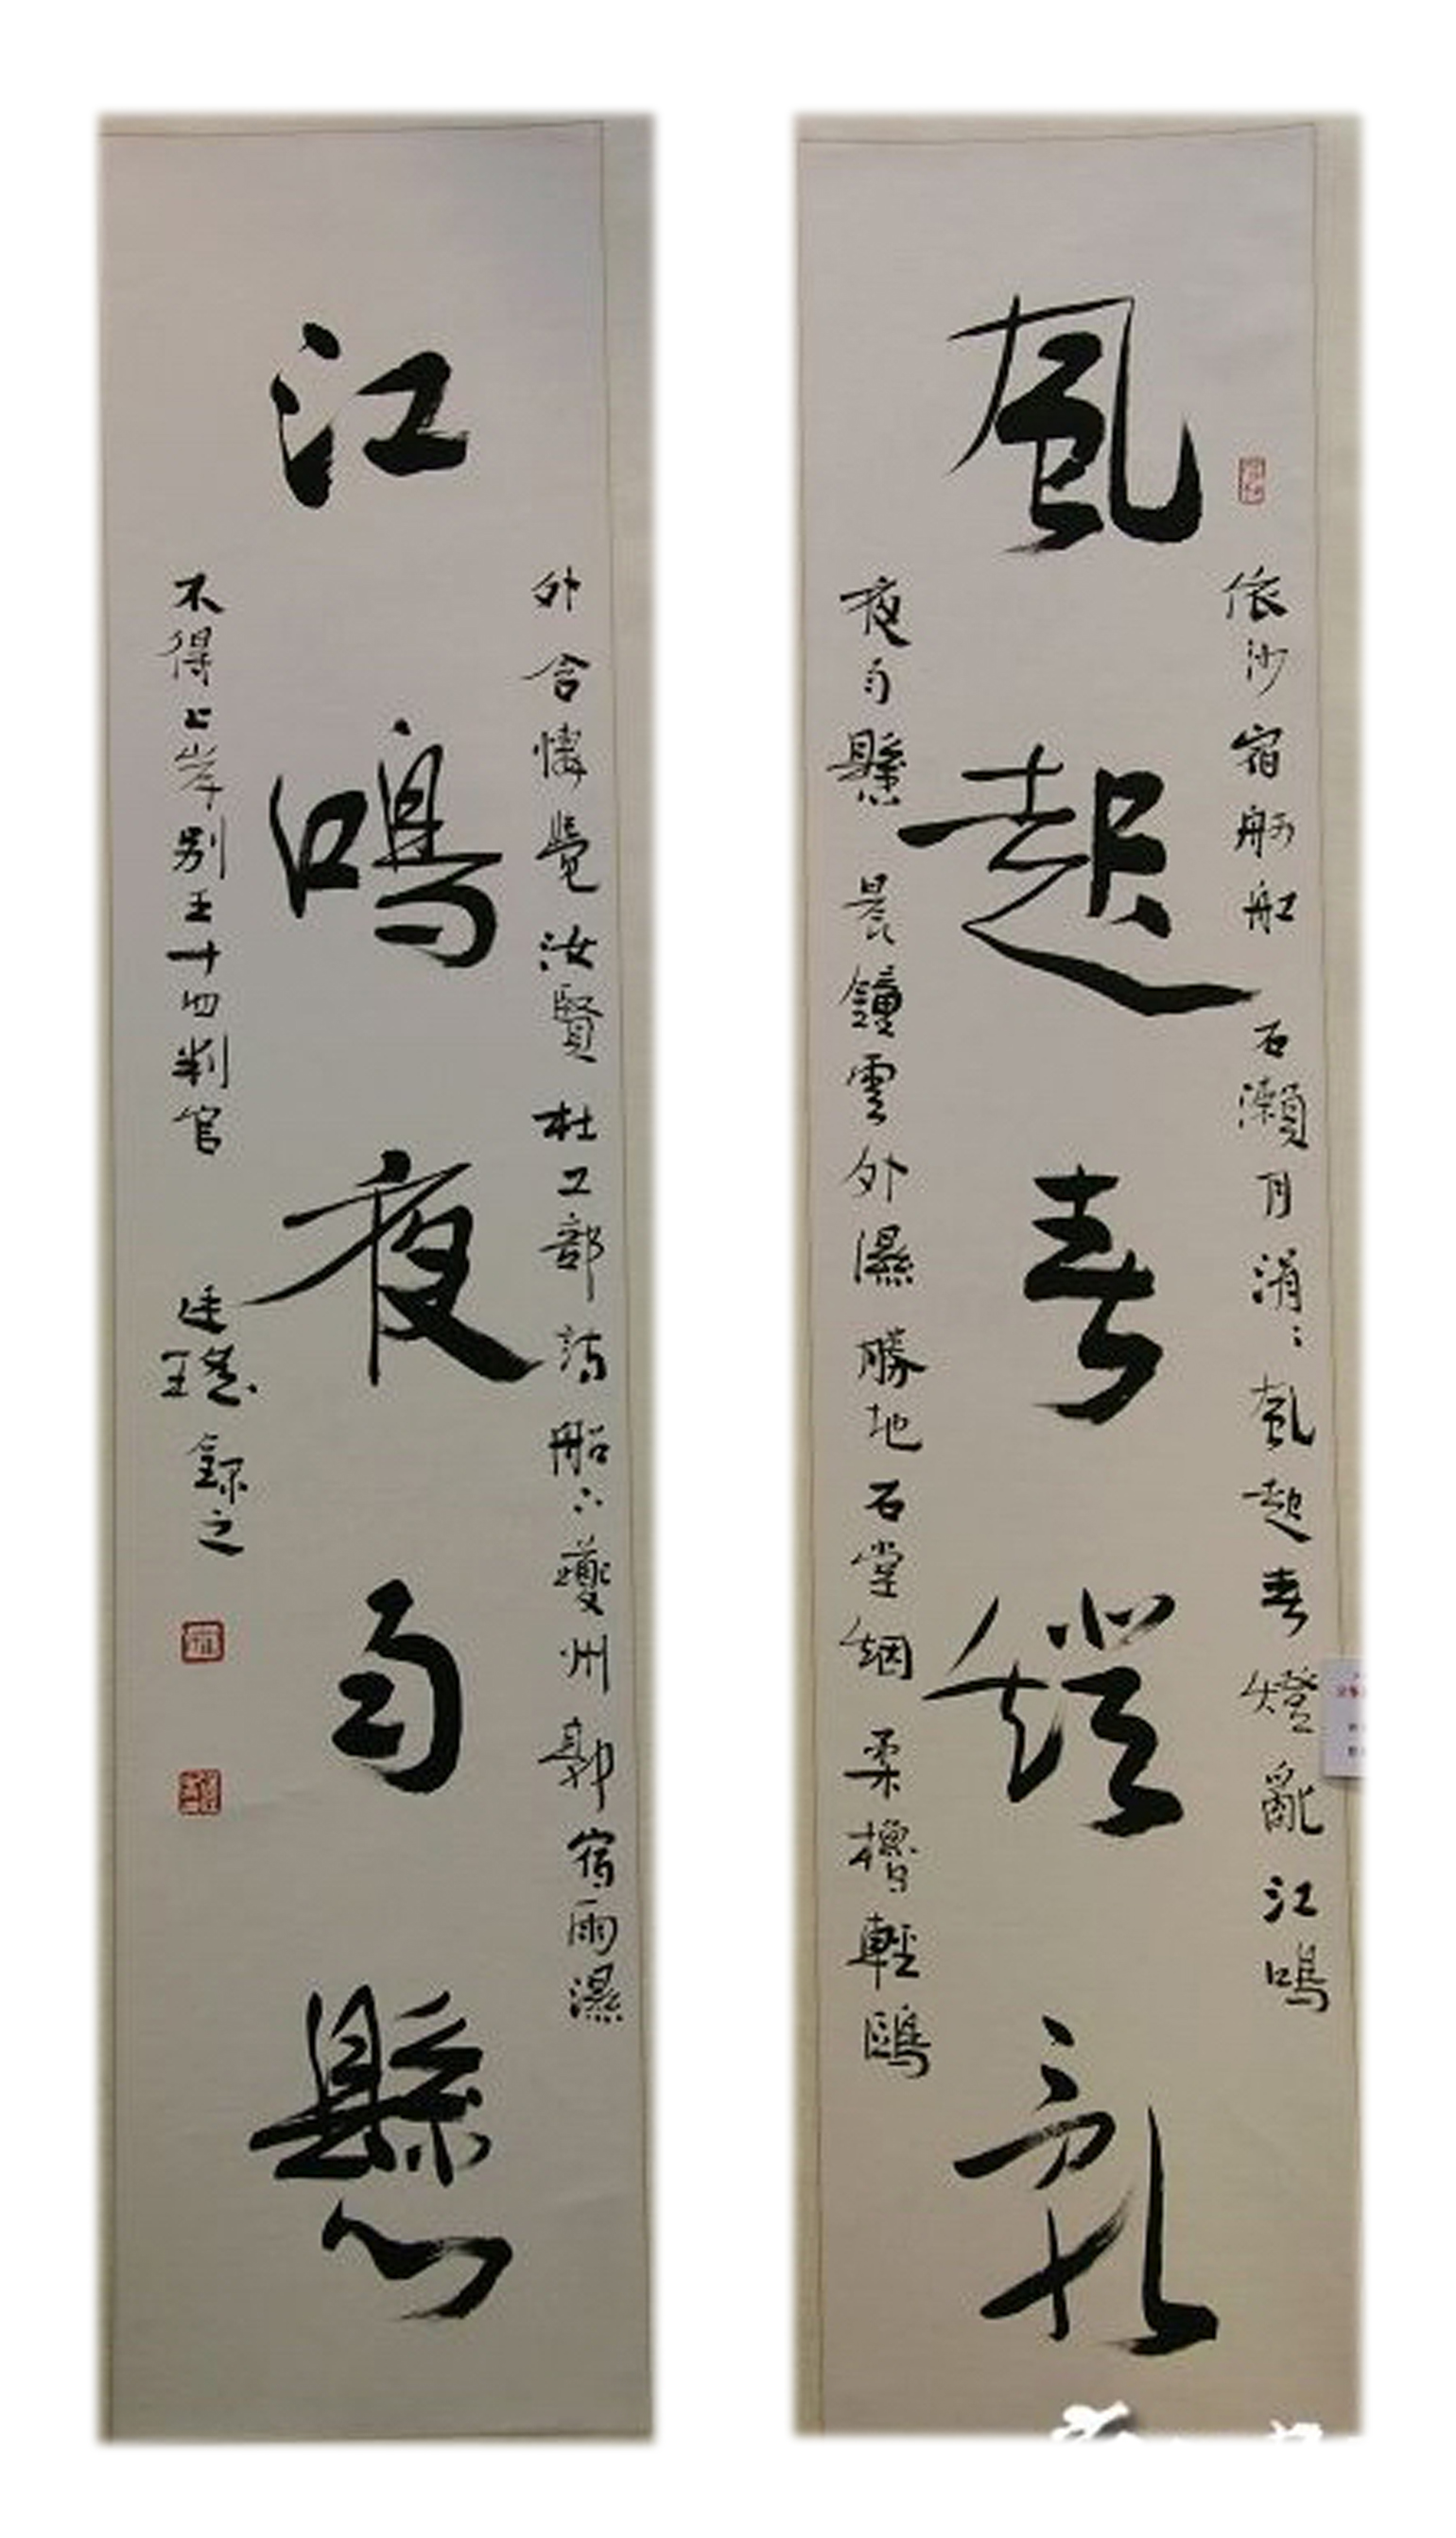 依沙宿舸船石瀨月涓〻風起春燈亂江鳴
風起春燈亂
夜雨懸晨鐘雲外濕勝地石堂烟柔櫓輕鷗
外含悽覺汝賢杜工部詩船下夔州郭宿雨濕
江鳴夜雨懸
不得上岸別王十四判官 錄之